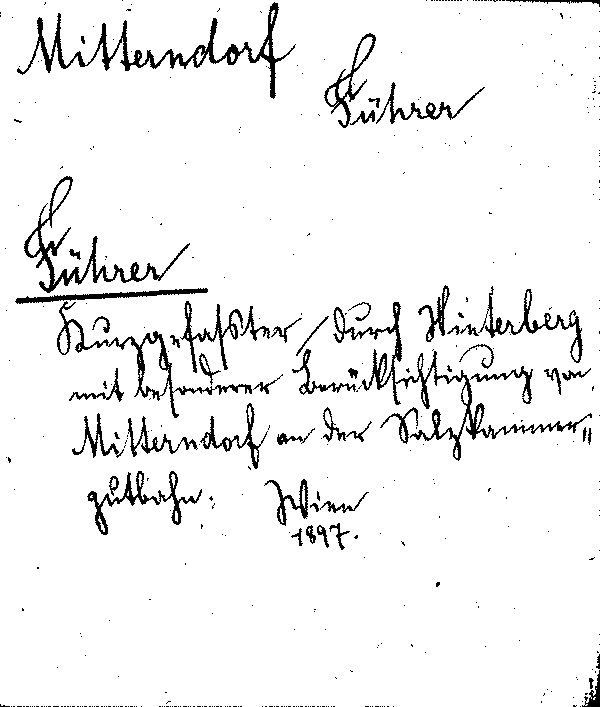 Mitterndorf
Führer
Führer
Kurzgefasster / durch Hinterberg
mit besonderer Berücksichtigung von
Mitterndorf an der Salzkammer„
gutbahn. Wien
1897.